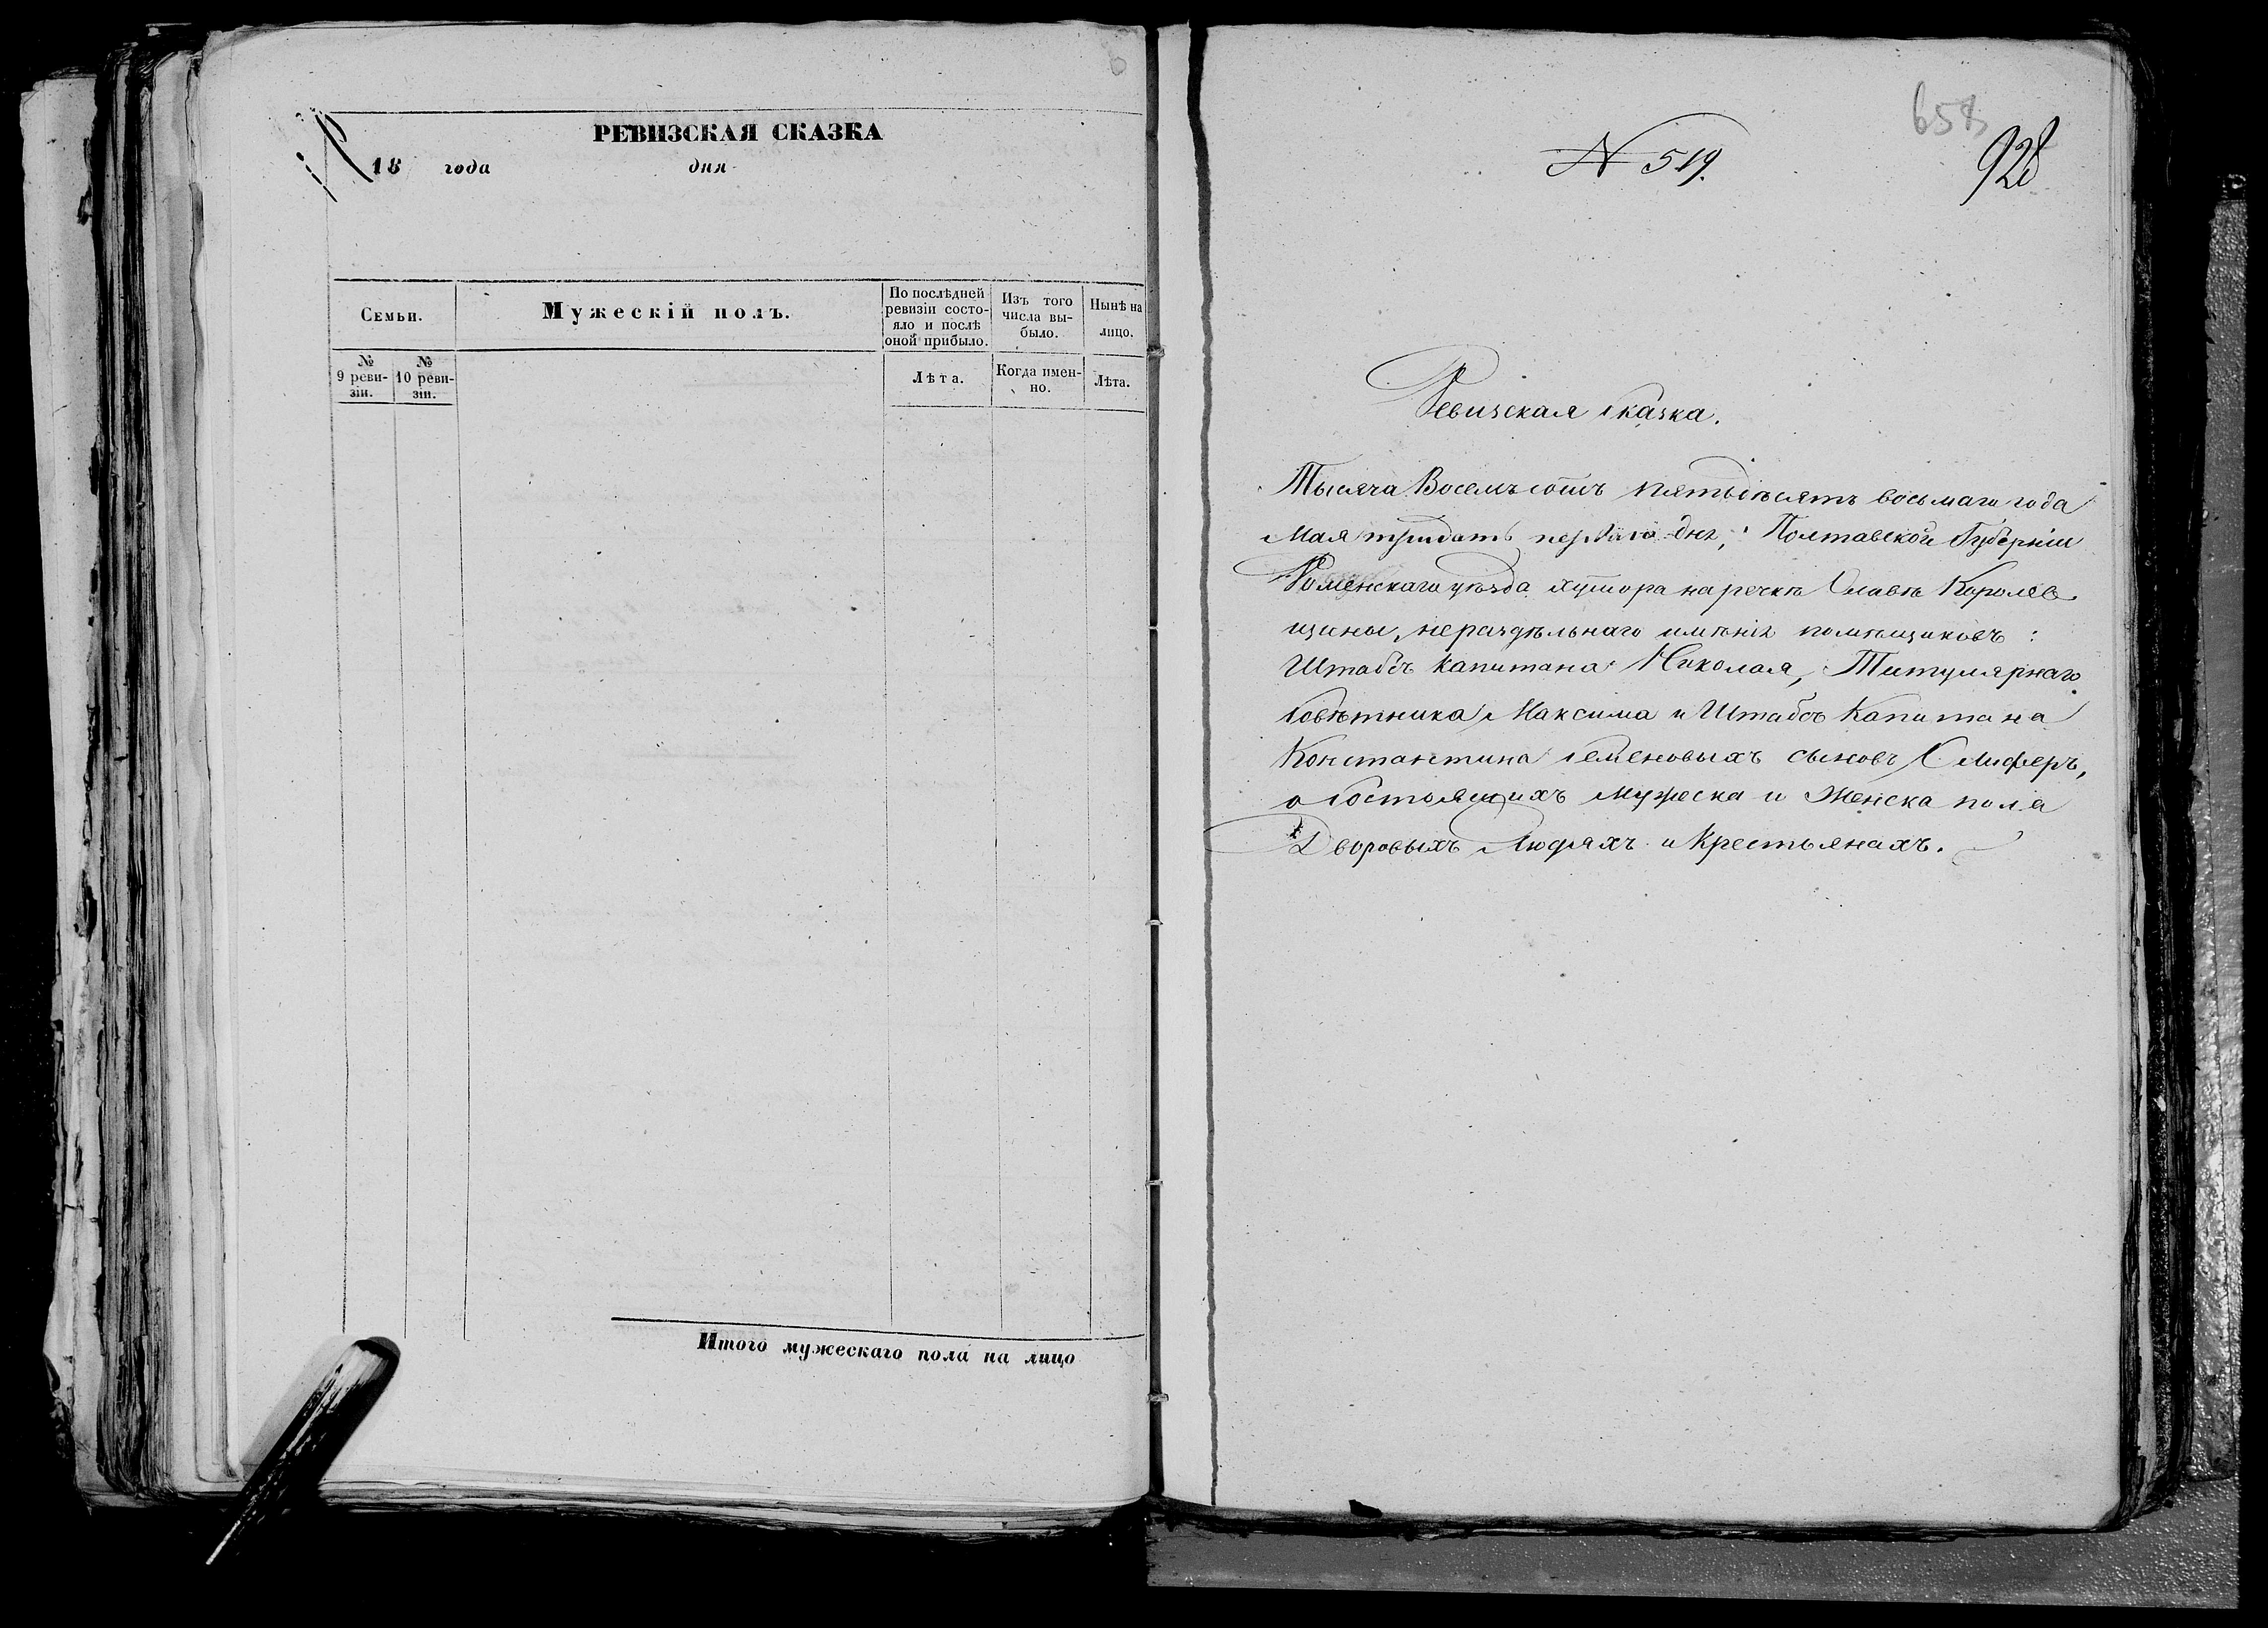 РЕВИЗСКАЯ СКАЗКА
18 года дня
Семьи.
Мужескій полъ.
По послѣдней ревизіи состояло и послѣ оной прибыло.
Изъ того числа выбыло.
Нынѣ на лицо.
№ 9 ревизіи.
№ 10 ревизіи.
Лѣта.
Когда именно.
Лѣта.
Итого мужескаго пола на лицо
658
N 519.
928
Ревизская сказка.
Тысяча Восемъ сотъ пятьдѣсятъ восьмаго года
Мая тридцать перваго дня, Полтавской Губерніи
Роменскаго уѣзда хутора на речкѣ Олавѣ Королев
щины, нераздѣльнаго имѣнія помѣщиковъ:
Штабсъ Капитана Николая, Титулярнаго
Совѣтника Максима и Штабсъ Капитана
Константина Семеновыхъ сыновъ
о состоящихъ мужеска и женска пола
Дворовыхъ Людяхъ и Крестьянахъ.